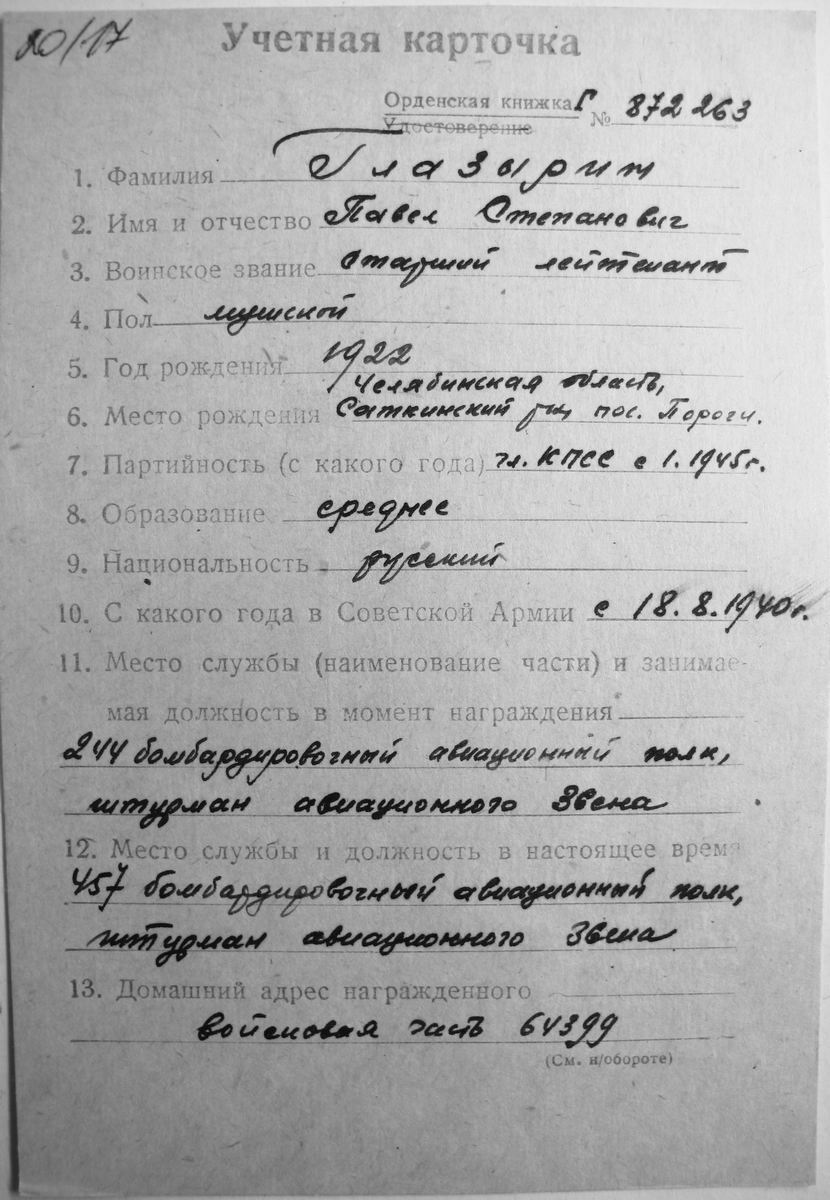 20/17
Учетная карточка
Орденская книжка Г
Удостоверение № 872263
1. Фамилия Глазырин
2. Имя и отчество Павел Степанович
3. Воинское звание Старший лейтенант
4. Пол мужской
5. Год рождения 1922
Челябинская область,
6. Место рождения Саткинский р-н, пос. Пороги.
7. Партийность (с какого года) чл. КПСС с 1.1945г.
8. Образование среднее
9. Национальность русский
10. С какого года в Советской Армии с 18.8.1940г.
11. Место службы (наименование части) и занимае-
мая должность в момент награждения
244 бомбардировочный авиационный полк,
штурман авиационного Звена
12. Место службы и должность в настоящее время
457 бомбардировочный авиационный полк,
штурман авиационного Звена
13. Домашний адрес награжденного
войсковая часть 64399
(См. н/обороте)